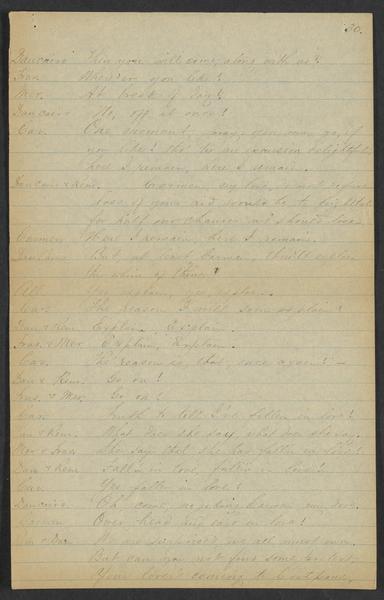 30.
Dancairo Then you will come along with us?
Fras. When'er you like!
Mer. At break of day!
Dancairo No, off at once!
Car. One moment, pray, you may go, if
you like! tho' to an excursion delightful
here I remain, here I remain.
Dancairo & Rem. Carmen, my love, do not refuse
for half our chances we should lose
Carmen Here I remain, here I remain.
Dancairo But, at least Carmen, thou'lt explain
the whim of thine?
All Yes explain, yes, explain.
Car. The reason I will soon explain!
Dan & Rem Explain. Explain.
Fras. & Mer. Explain, Explain.
Car. The reason is, that, once again! —
Dan & Rem. Go on!
Fras. & Mer. Go on!
Car. Truth to tell I've fallen in love!
Dan & Rem. What does she say, what does she say.
Mer & Fras She say that she has fallen in love!
Dan & Rem Fallen in love, fallen in love!
Car. Yes fallen in love!
Dancairo Oh come, no joking Carmen my dear.
Carmen Over head and ears in love!
Rem & Dan. We are surprised, we all must own.
But can you not find some pretext,
Your lover's coming to